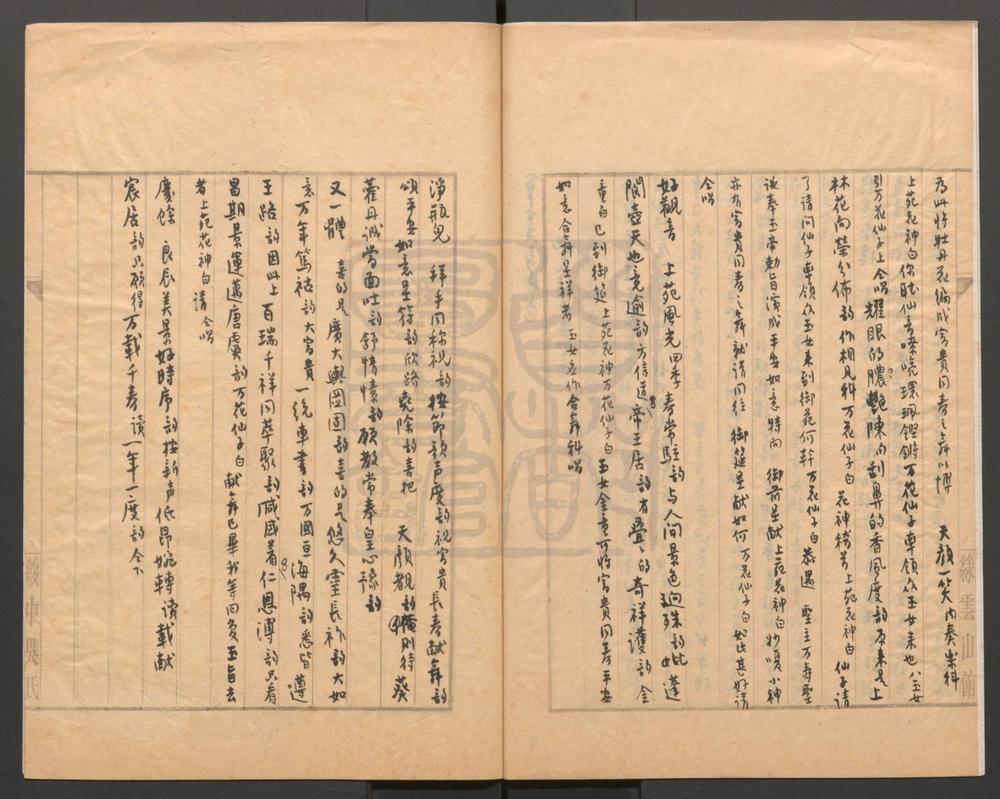 為此將牡丹花編成富貴同春之舞以博　天顏一笑內奏樂科
上苑花神白你聽仙音嘹喨環珮鏗鏘万花仙子率領众玉女來也八玉女
引万花仙子上仝唱耀眼的膿艷陳向刮鼻的香風度韵原來是上
林花向榮分佈韵作相見科万花仙子白花神稽首上苑花神白仙子請
了請問仙子率領众玉女來到御苑何幹万花仙子白恭遇聖主万壽聖
誕奉玉帝勅旨演成平安如意特向　御前呈献上苑花神白妙嗄小神
亦有富貴同春之舞就請同往　御筵呈献如何万花仙子白如此甚好請
仝唱
好觀音　上苑風光四季春常駐韵与人間景色迥殊韵比蓬
閬壺天也竟逾韵方信道帝王居韵有疊疊的奇祥護韵金
童白已到御筵上苑花神万花仙子白玉女金童可將富貴同春平安
如意合舞呈祥者　玉女应作合舞科唱
淨瓶兒　拜手同称祝韵按節歌声度韵祝富貴長春献舞韵
頌平安如意呈符韵欣路堯除韵喜把　天顏覩韵俺則待葵
藿丹誠當面吐韵舒情愫韵願教常奉皇心豫韵
又一體　喜的是廣大輿圖固韵喜的是悠久靈長祚韵大如
意万年篤祜韵大富貴一統車書韵万國亘海隅韵悉皆遵
王路韵因此上百瑞千祥同萃聚韵咸感著仁恩溥韵只看
昌期景運邁唐虞韵万花仙子白献舞已畢我等回复玉旨去
者上苑花神白請　仝唱
慶餘　良辰美景好時序韵按新声低昂婉轉讀載献
宸居韵只願得万載千春讀一年一度韵仝下
綠雲山館
綏中吳氏